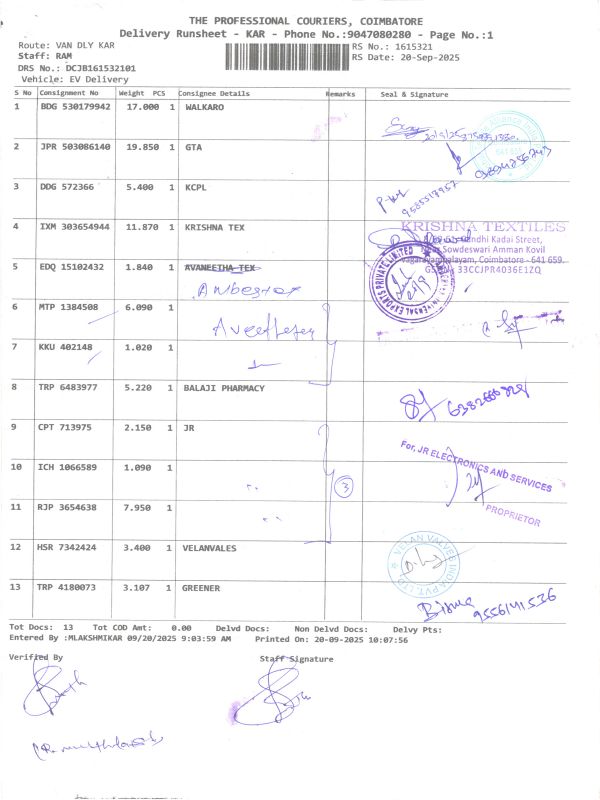 THE PROFESSIONAL COURIERS, COIMBATORE
Delivery Runsheet - KAR - Phone No.:9047080280 - Page No.:1
Route: VAN DLY KAR RS No.: 1615321
Staff: RAM RS Date: 20-Sep-2025
DRS No.: DCJB161532101
Vehicle: EV Delivery
S No Consignment No Weight PCS Consignee Details Remarks Seal & Signature
1 BDG 530179942 17.000 1 WALKARO
2 JPR 503086140 19.850 1 GTA
3 DDG 572366 5.400 1 KCPL
9585517957
4 IXM 303654944 11.870 1 KRISHNA TEX
KRISHNA TEXTILES
Gandhi Kadai Street,
Sowdeswari Amman Kovil
Coimbatore - 641 659.
33CCJPR4036E1ZQ
5 EDQ 15102432 1.840 1 AVANEETHA TEX
6 MTP 1384508 6.090 1
7 KKU 402148 1.020 1
8 TRP 6483977 5.220 1 BALAJI PHARMACY
9 CPT 713975 2.150 1 JR
For, JR ELECTRONICS AND SERVICES
PROPRIETOR
10 ICH 1066589 1.090 1 " 3
11 RJP 3654638 7.950 1 "
12 HSR 7342424 3.400 1 VELANVALES
VELAN VALVES INDIA PVT. LTD
13 TRP 4180073 3.107 1 GREENER
9556141536
Tot Docs: 13 Tot COD Amt: 0.00 Delvd Docs: Non Delvd Docs: Delvy Pts:
Entered By :MLAKSHMIKAR 09/20/2025 9:03:59 AM Printed On: 20-09-2025 10:07:56
Verified By Staff Signature